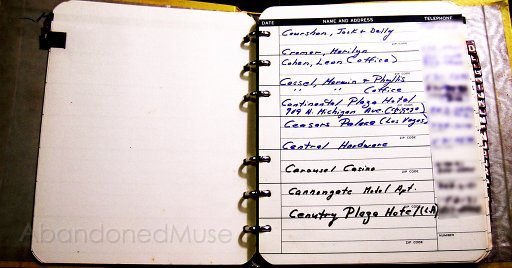 DATE NAME AND ADDRESS TELEPHONE
Courshon, Jack & Dolly
ZIP CODE
Cramer, Marilyn
Cohen, Leon (office)
ZIP CODE
Cassel, Marwin & Phyllis
" " (office
ZIP CODE
Continental Plaza Hotel
909 N. Michigan Ave. (Chicago)
Ceasars Palace (Las Vegas)
ZIP CODE
Central Hardware
ZIP CODE
Carousel Casino
ZIP CODE
Cannongate Model Apt.
ZIP CODE
Cenutry Plaza Hotel (LA)
NUMBER
ZIP CODE
AbandonedMuse